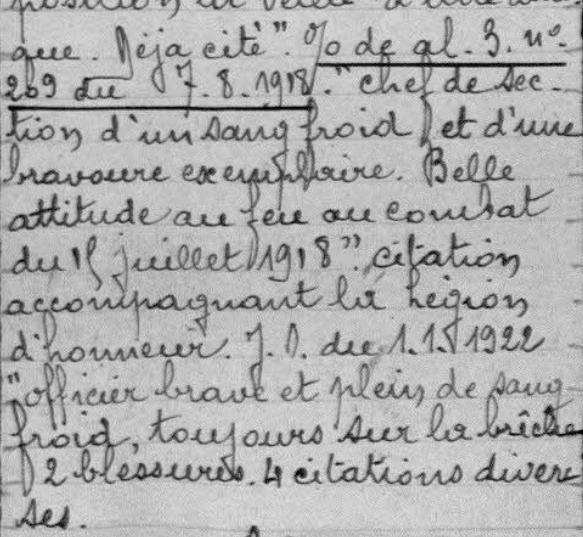 que. Déja cité". % de gl. 3. n°
269 du 7.8.1918. "chef de sec-
tion d'un sang froid et d'une
bravoure exemplaire. Belle
attitude au feu au combat
du 15 juillet 1918". citation
accompagnant la Légion
d'honneur. J.O. du 1.1.1922
"officier brave et plein de sang
froid, toujours sur la brêche
2 blessures. 4 citations diver
ses.